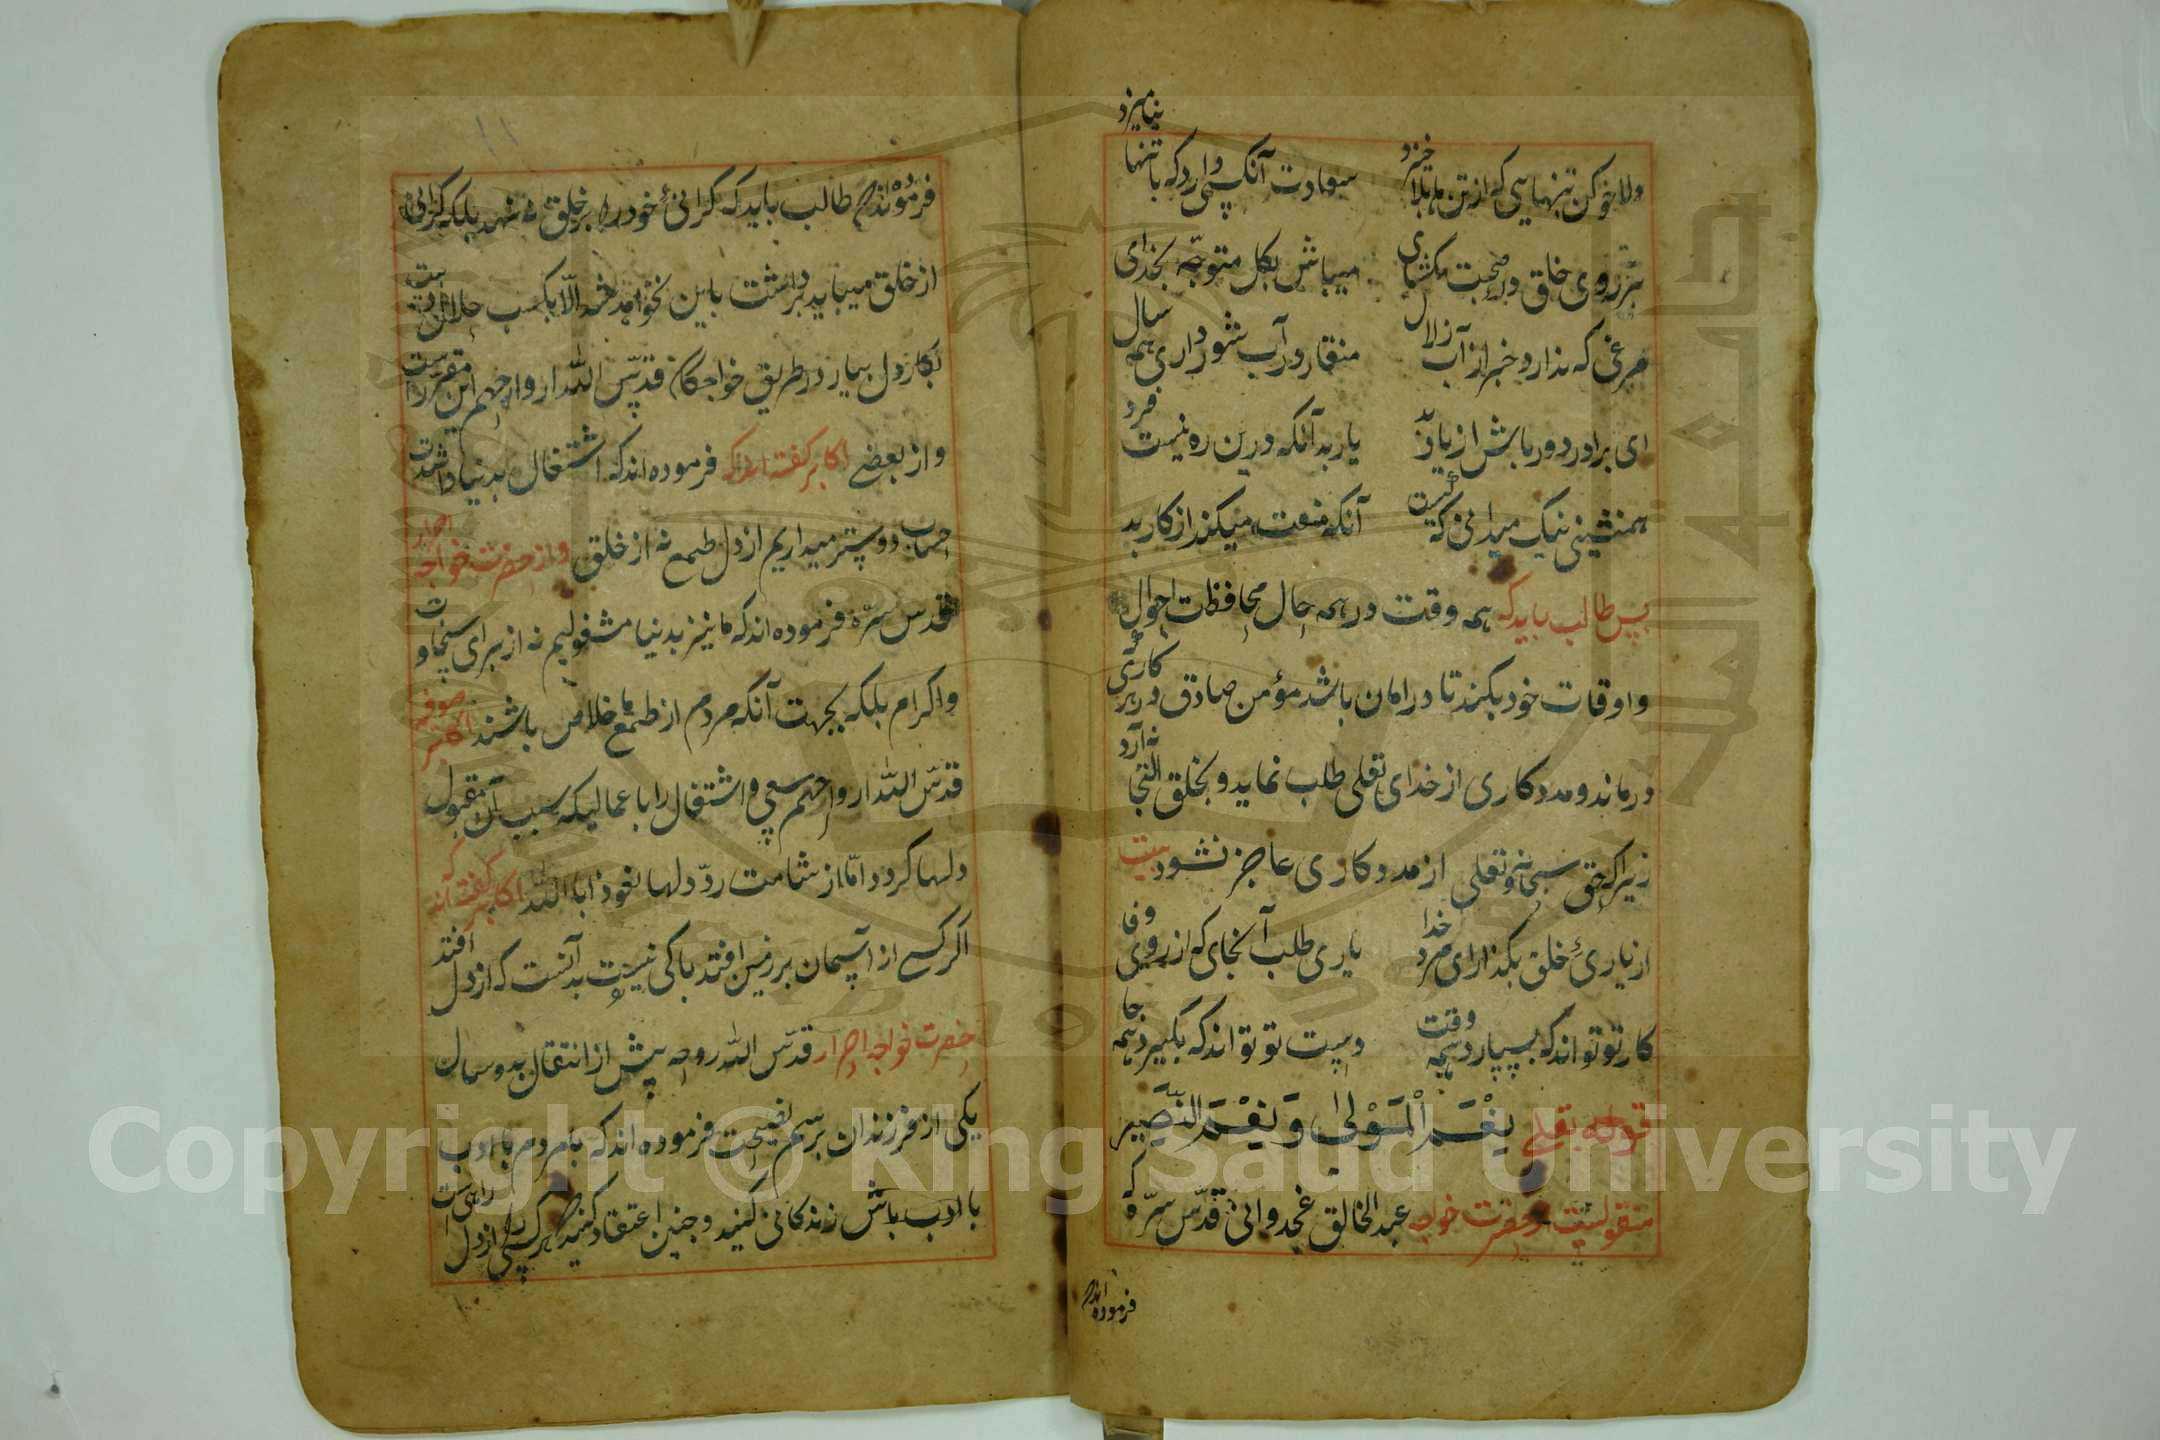 دلا خو کن بتنهایی که از تن ها بلا خیزد سعادت آنکسی دارد که با تنها نیامیزد
بر روی خلق در صحبت مکشای میباش بکل متوجّه بخدای
مرغی که ندارد خبر از آب زلال منقار در آب شور داری همه سال
ای برادر دور باش از یار بد یار بد آنکه درین ره نیست فرد
همنشینی نیک میدانی که کیست آنکه منعت میکند از کار بد
پس طالب باید که همه وقت در همه حال محافظت احوال
و اوقات خود بکند تا در امان باشد مؤمن صادق در هر کاری که
درماند و مدد کاری از خدای تعلی طلب نماید و بخلق التجا نه آرد
زیرا که حق سبحانه و تعلی از مدد کاری عاجز نشود بیت
از یاریٔ خلق بگذر ای مرد خدا یاری طلب آنجای که از روی وفا
کار تو تواند که بسپارد همه وقت دست تو تواند که بگیرد همه جا
قوله تعلی نِعْمَ الْمَوْلیٰ وَ نِعْمَ النَّصِیر
منقولست از حضرت خواجه عبد الخالق غجدوانی قدّس سرّه که
فرموده اند
فرموده اند طالب باید که گرانیٔ خود را بر خلق نه نهد بلکه گرانی
از خلق میباید برداشت باین نخواهد شد الّا بکسب حلال دست
بکار دل بیار در طریق خواجگان قدّس اللّه ارواحهم این مقرّر است
و از بعضی اکابر گفته اند که فرموده اند که اشتغال بدنیا داشت
دوستر میداریم از دل طمع نه از خلق و از حضرت خواجه احرار
قدس سرّه فرموده اند که ما نیز بدنیا مشغولیم نه از برای سخاوت
و اکرام بلکه بجهت آنکه مردم از طمع ما خلاص باشند اکابر صوفیه
قدّس اللّه ارواحهم سعی و اشتغال را با عمالیکه سبب آن مقبول
دلها گردد امّا از شامت ردّ دلها نعوذ باللّه اکابر گفته اند که
اگر کسی از آسمان بر زمین افتد باکی نیست بد آنست که از دل افتد
حضرت خواجه احرار قدّس اللّه روحه پیش از انتقال بدو سال
یکی از فرزندان برسم نصیحت فرموده اند که با مردم با ادب
با ادب باش زندکانی کنید و چنین اعتقاد کنید هر کسی از دل راهیست
Copyright © King Saud University